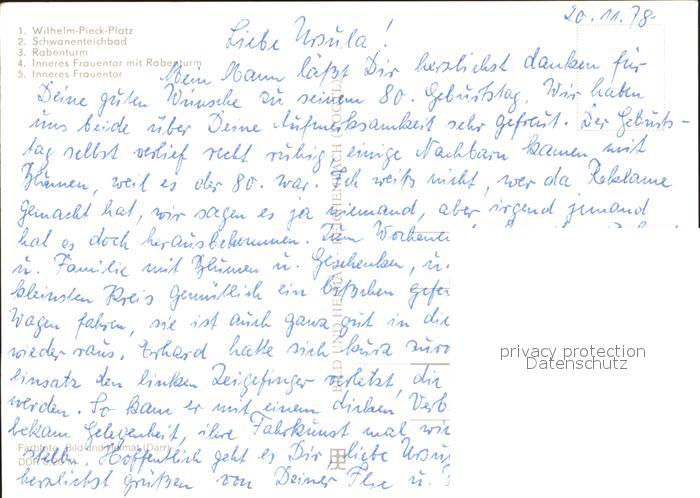 20.11.78.
1. Wilhelm-Pieck-Platz
2. Schwanenteichbad
3. Rabenturm
4. Inneres Frauentor mit Rabenturm
5. Inneres Frauentor
Liebe Ursula!
Mein Mann läßt Dir herzlichst danken für
Deine guten Wünsche zu seinem 80. Geburtstag. Wir haben
uns beide über Deine Aufmerksamkeit sehr gefreut. Der Geburts-
tag selbst verlief recht ruhig, einige Nachbarn kamen mit
Blumen, weil es der 80. war. Ich weiß nicht, wer da Reklame
gemacht hat, wir sagen es ja niemand, aber irgend jemand
hat es doch herausbekommen. Zum
u. Familie mit Blumen u. Geschenken, u.
kleinsten Kreis gemütlich ein bißchen
Wagen fahren, sie ist auch ganz gut in die
wieder raus. Erhard hatte sich kurz
einsatz den linken Zeigefinger verletzt, die
werden. So kam er mit einem dicken Verb
bekam Gelegenheit, ihre Fahrkunst mal
stelln. Hoffentlich geht es Dir liebe Ursu
herzlichst grüßen von Deiner Else u.
BILD UND HEIMAT REICHENBACH
Farbfoto: Bild und Heimat (Darr)
DDR
privacy protection
Datenschutz